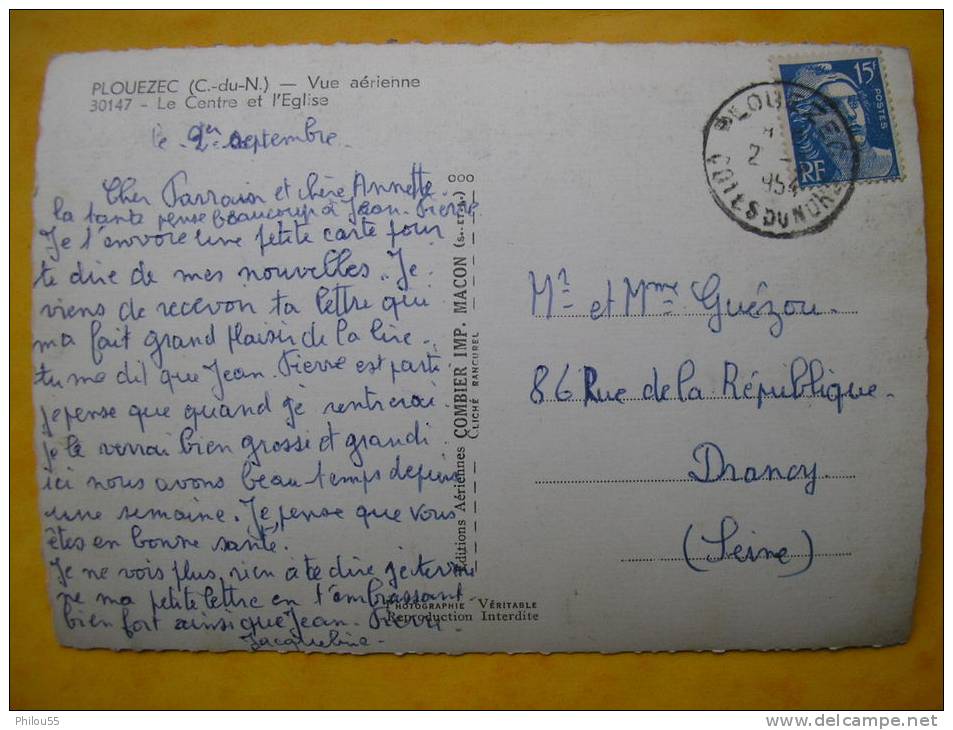 PLOUEZEC (C.-du-N.) — Vue aérienne
30147 - Le Centre et l'Eglise
le 2er septembre.
Cher Parrain et chère Annette
la tante pense beaucoup à Jean-Pierre
Je t'envoie une petite carte pour
te dire de mes nouvelles. Je
viens de recevoir ta lettre qui
ma fait grand plaisir de la lire.
tu me dit que Jean-Pierre est parti
je pense que quand je rentrerai
je le verrai bien grossi et grandi
ici nous avons beau temps depuis
une semaine. Je pense que vous
êtes en bonne santé.
Je ne vois plus rien a te dire je termi
ne ma petite lettre en t'embrassant
bien fort ainsi que Jean-Pierre.
Jacqueline
Editions Aériennes COMBIER IMP. MACON (S.-ET-L.) ooo
CLICHÉ RANCUREL
PHOTOGRAPHIE VÉRITABLE
Reproduction Interdite
15F
POSTES
RF
PLOUEZEC
2 -
1954
COTES DU NORD
Mr et Mme Guézou.
86 Rue de la République.
Drancy.
(Seine)
Philou55
http://www.delcampe.net